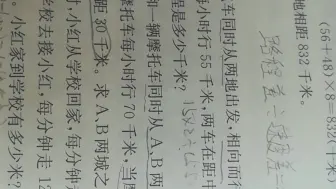 (56+48)×8=832(千
地相距 832 千米。
路程差÷速度差=
车同时从两地出发，相向而
小时行 55 千米，两车在距中
程是多少千米？
辆摩托车同时从A、B两
摩托车每小时行 70 千米，当
距 30 千米。求 A、B 两城之
时，小红从学校回家，每分钟
学校去接小红，每分钟走 12
。小红家到学校有多少米？